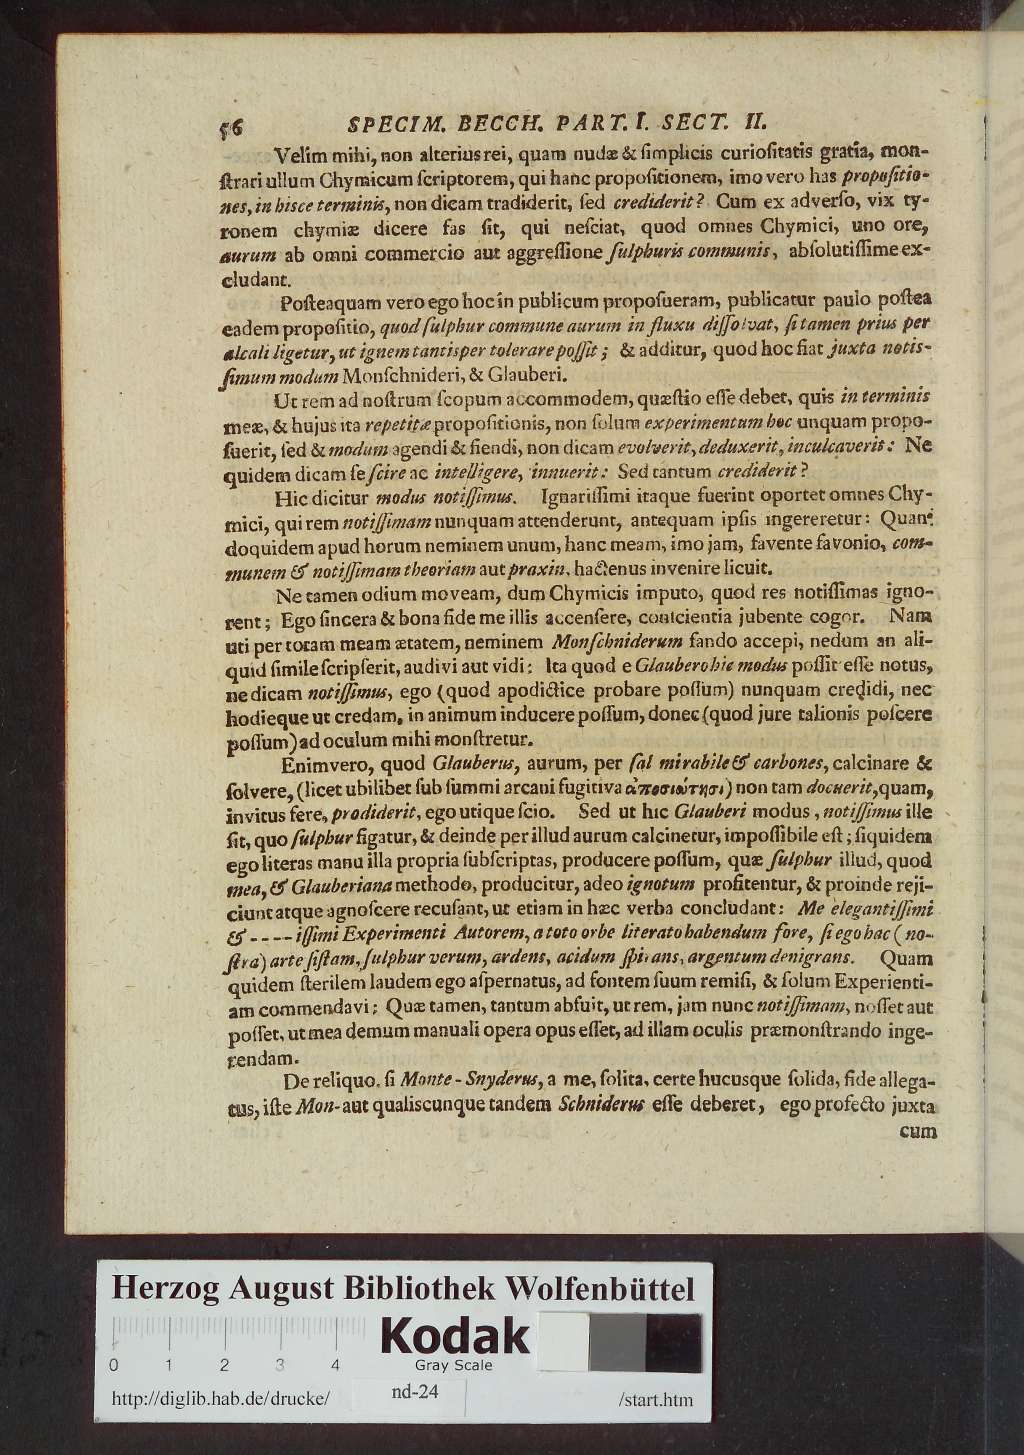 56 SPECIM. BECCH. PART. I. SECT. II.
Velim mihi, non alterius rei, quam nudæ & ſimplicis curioſitatis gratia, mon-
ſtrari ullum Chymicum ſcriptorem, qui hanc propoſitionem, imo vero has propoſitio-
nes, in hisce terminis, non dicam tradiderit, ſed crediderit? Cum ex adverſo, vix ty-
ronem chymiæ dicere fas ſit, qui neſciat, quod omnes Chymici, uno ore,
aurum ab omni commercio aut aggreſſione ſulphuris communis, abſolutiſſime ex-
cludant.
Poſteaquam vero ego hoc in publicum propoſueram, publicatur paulo poſtea
eadem propoſitio, quod ſulphur commune aurum in fluxu diſſolvat, ſi tamen prius per
alcali ligetur, ut ignem tantisper tolerare poſſit; & additur, quod hoc fiat juxta notis-
ſimum modum Monſchnideri, & Glauberi.
Ut rem ad noſtrum ſcopum accommodem, quæſtio eſſe debet, quis in terminis
meæ, & hujus ita repetitæ propoſitionis, non ſolum experimentum hoc unquam propo-
ſuerit, ſed & modum agendi & fiendi, non dicam evolverit, deduxerit, inculcaverit: Ne
quidem dicam ſe ſcire ac intelligere, innuerit: Sed tantum crediderit?
Hic dicitur modus notiſſimus. Ignariſſimi itaque fuerint oportet omnes Chy-
mici, qui rem notiſſimam nunquam attenderunt, antequam ipſis ingereretur: Quan-
doquidem apud horum neminem unum, hanc meam, imo jam, favente favonio, com-
munem & notiſſimam theoriam aut praxin, hactenus invenire licuit.
Ne tamen odium moveam, dum Chymicis imputo, quod res notiſſimas igno-
rent; Ego ſincera & bona fide me illis accenſere, conſcientia jubente cogor. Nam
uti per totam meam ætatem, neminem Monſchniderum fando accepi, nedum an ali-
quid ſimile ſcripſerit, audivi aut vidi: Ita quod e Glaubero hic modus poſſit eſſe notus,
ne dicam notiſſimus, ego (quod apodictice probare poſſum) nunquam credidi, nec
hodieque ut credam, in animum inducere poſſum, donec (quod jure talionis poſcere
poſſum) ad oculum mihi monſtretur.
Enimvero, quod Glauberus, aurum, per ſal mirabile & carbones, calcinare &
ſolvere, (licet ubilibet ſub ſummi arcani fugitiva ἀποσιώτησι) non tam docuerit, quam,
invitus fere, prodiderit, ego utique ſcio. Sed ut hic Glauberi modus, notiſſimus ille
ſit, quo ſulphur figatur, & deinde per illud aurum calcinetur, impoſſibile eſt; ſiquidem
ego literas manu illa propria ſubſcriptas, producere poſſum, quæ ſulphur illud, quod
mea, & Glauberiana methodo, producitur, adeo ignotum profitentur, & proinde reji-
ciunt atque agnoſcere recuſant, ut etiam in hæc verba concludant: Me elegantiſſimi
& - - - - iſſimi Experimenti Autorem, a toto orbe literato habendum fore, ſi ego hac (no-
ſtra) arte ſiſtam, ſulphur verum, ardens, acidum ſpirans, argentum denigrans. Quam
quidem ſterilem laudem ego aſpernatus, ad fontem ſuum remiſi, & ſolum Experienti-
am commendavi; Quæ tamen, tantum abfuit, ut rem, jam nunc notiſſimam, noſſet aut
poſſet, ut mea demum manuali opera opus eſſet, ad illam oculis præmonſtrando inge-
rendam.
De reliquo, ſi Monte-Snyderus, a me, ſolita, certe hucusque ſolida, fide allega-
tus, iſte Mon- aut qualiscunque tandem Schniderus eſſe deberet, ego profecto juxta
cum
Herzog August Bibliothek Wolfenbüttel
Kodak
Gray Scale
0 1 2 3 4
http://diglib.hab.de/drucke/ nd-24 /start.htm